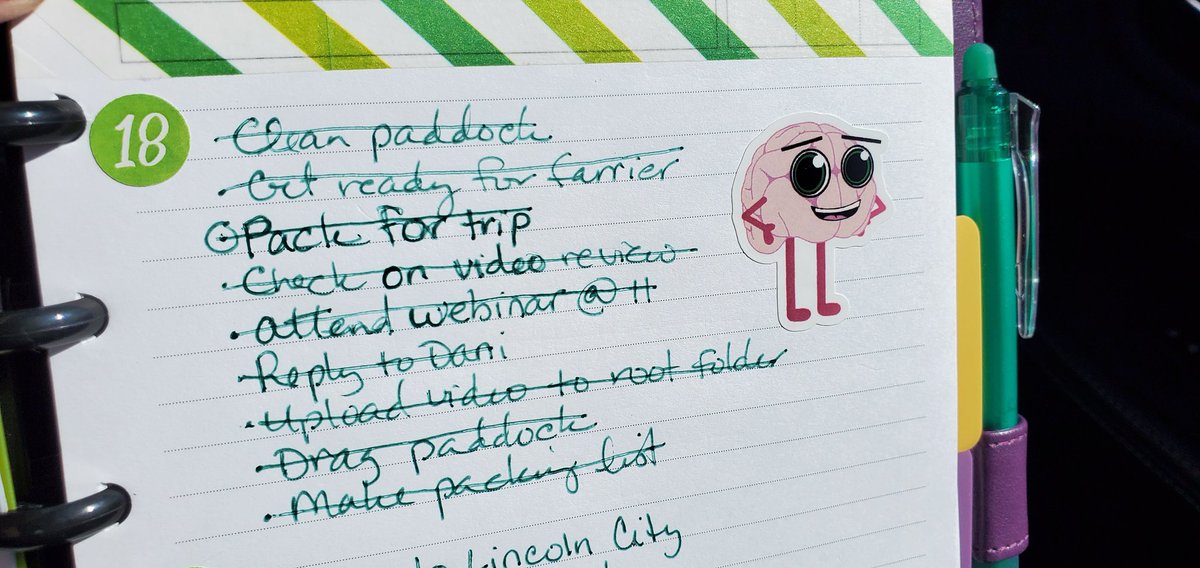 18
Clean paddock
• Get ready for farrier
Pack for trip
• Check on video review
• Attend webinar @ 11
Reply to Dani
• Upload video to root folder
• Drag paddock
• Make packing list
to Lincoln City